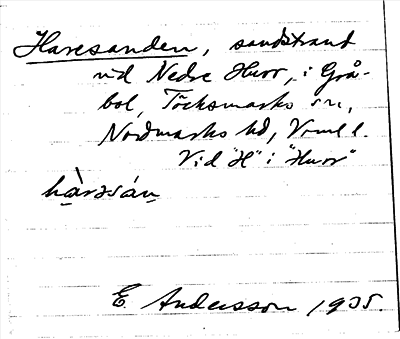 Haresanden, sandstrand
vid Nedre Hurr, i Grå-
bol, Töcksmarks sn.,
Nordmarks hd, Vrml l.
Vid "H" i "Hurr"
hàrəsán
E Andersson 1935.